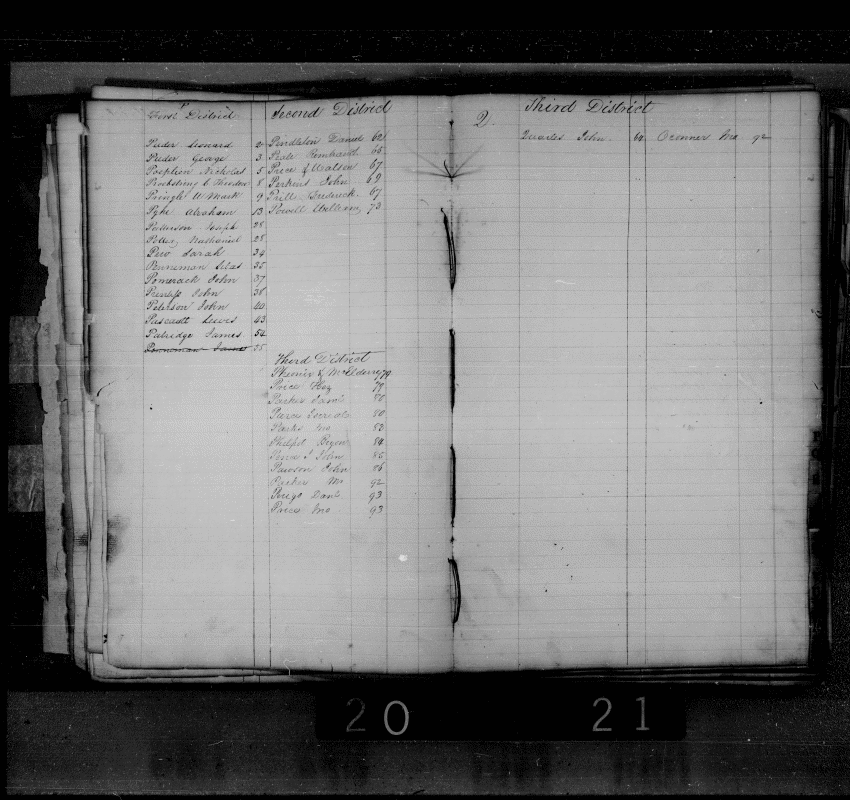 P
First District
Peder Leonard 2
Peder George 3
Poeplien Nicholas 5
Pringle W Mark 9
Pyke Abraham 13
Patterson Joseph 28
Pottey Nathaniel 28
Pew Sarah 34
Penneman Silas 35
Pomerack John 37
Prentiss John 38
Peterson John 40
Pascault Lewis 43
Patridge James 54
Penneman James 55
Second District
Pendleton Daniel 62
Peale Rembrandt 65
Price & Watson 67
Perkens John 69
Prill Frederick 67
Powell William 73
Third District
Phenix & McElderry 79
Price Hez 79
Parker Saml 80
Pierce 80
Parks 83
Philpot Bryon 84
Pierce John 86
Pawson John 86
Parker 92
Perigo Danl 93
Price 93
Q
Third District
Quarles John 64 Oconner 92
20 21